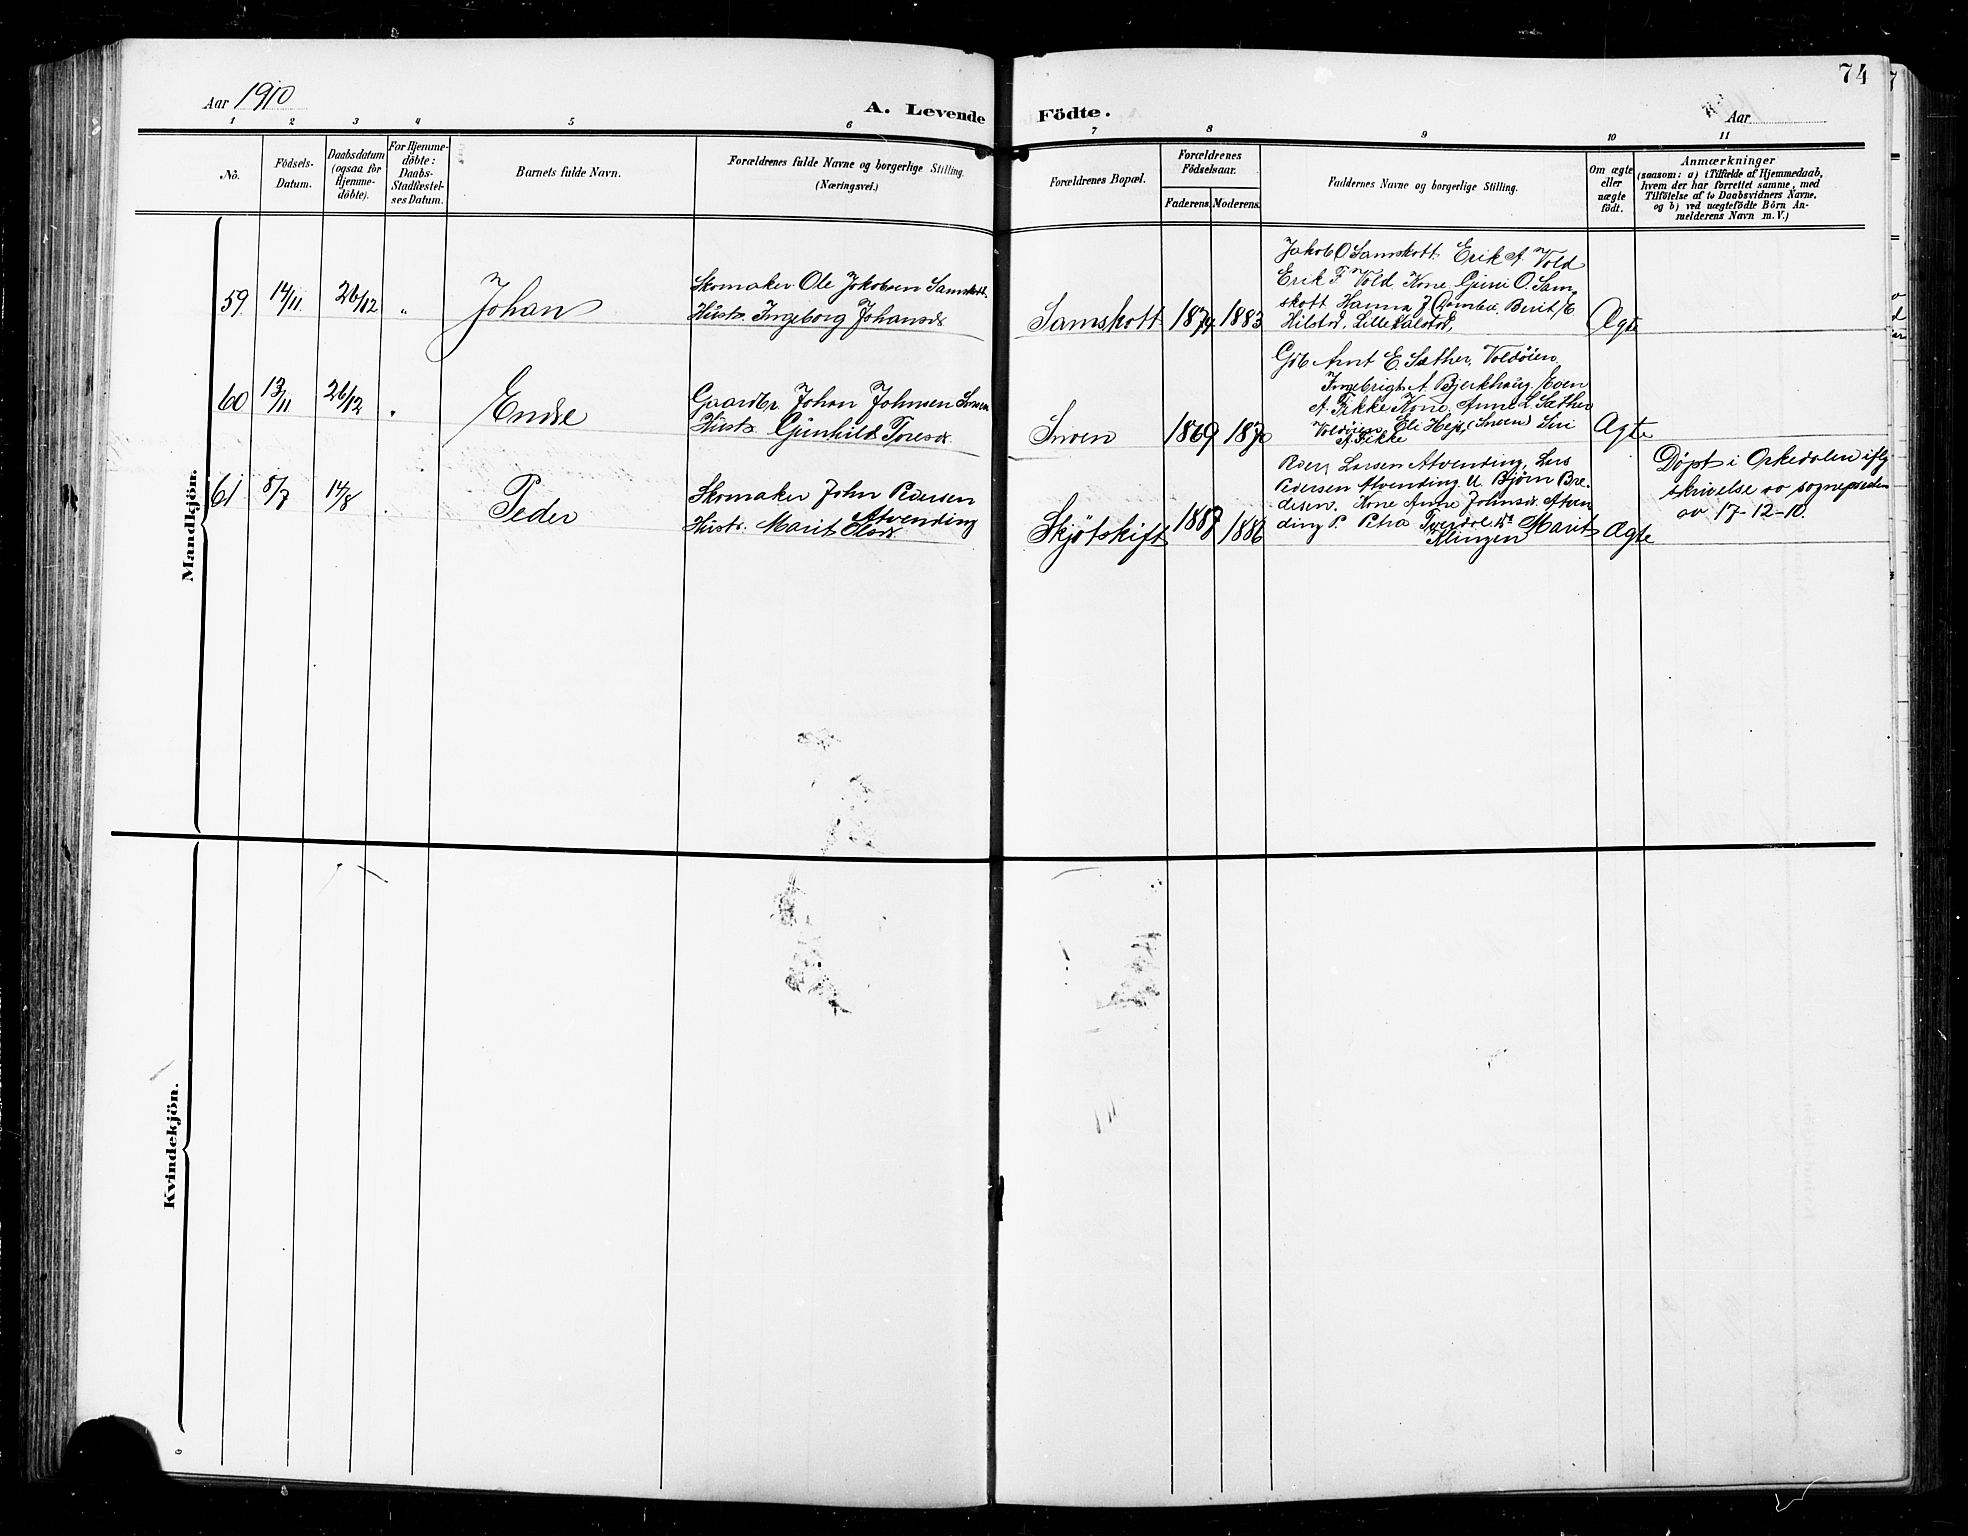 74
Aar 1910
A. Levende Födte.
Aar
1 2 3 4 5 6 7 8 9 10 11
No.
Födsels-
Datum.
Daabsdatum
(ogsaa for
Hjemme-
döbte).
For Hjemme-
döbte:
Daabs-
Stadfæstel-
ses Datum.
Barnets fulde Navn.
Forældrenes fulde Navne og borgerlige Stilling.
(Næringsvei.)
Forældrenes Bopæl.
Forældrenes
Födselsaar.
Faderens. Moderens.
Faddernes Navne og borgerlige Stilling.
Om ægte
eller
uægte
født.
Anmærkninger
(saasom: a) i Tilfælde af Hjemmedaab,
hvem der har forrettet samme, med
Tilföielse af to Daabsvidners Navne,
og b) ved uægtefödte Börn An-
melderens Navn m. V.)
Mandkjön.
59 14/11 26/12 „ Johan
Skomaker Ole Jokobsen Samskott
Hustr. Ingeborg Johansdr
Samskott 1874 1883
Jakob O Samskott Erik A. Vold
Erik F Vold Kone Guri O. Sam
skott Hanna J Berit E
Hilstad, Lille
Ægte
60 13/11 26/12 „ Endre
Gaardbr. Johan Johnsen
Hustr. Gunhild Toresdr.
1869 1870
Gdb Arnt E. Sæther, Voldøien
Ingebrigt A. Bjerkhaug Even
A. Fikke Kone Anne L. Sæther
Voldøien Eli Siri
A Fikke
Ægte
61 8/7 14/8 Peder
Skomaker John Pedersen
Atvending
Hustr. Marit Olsdr.
Skjötskift 1887 1886
Peder Larsen Atvending, Lars
Pedersen Atvending U Bjørn Bre-
desen. Kone Anne Johnsdr Atven
ding P. Petra Marit
Klingen
Ægte
Döpt i Orkedalen iflg
skrivelse av sognepresten
av 17-12-10.
Kvindekjön.